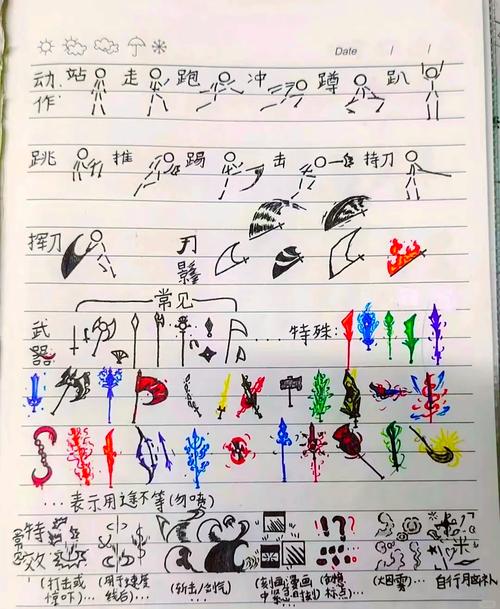 Date / /
动作: 站 走 跑 冲 蹲 趴
跳 推 踢 击 持刀
挥刀 刀影
常见
武器 ...... 特殊:
...表示用途不等(勿喷)
常见特效
(打击或惊吓)... (用于速度线后)... (斩击/刀光) (刻画漫画中紧 (幻想标点)... (大团雾)... 自行用函补